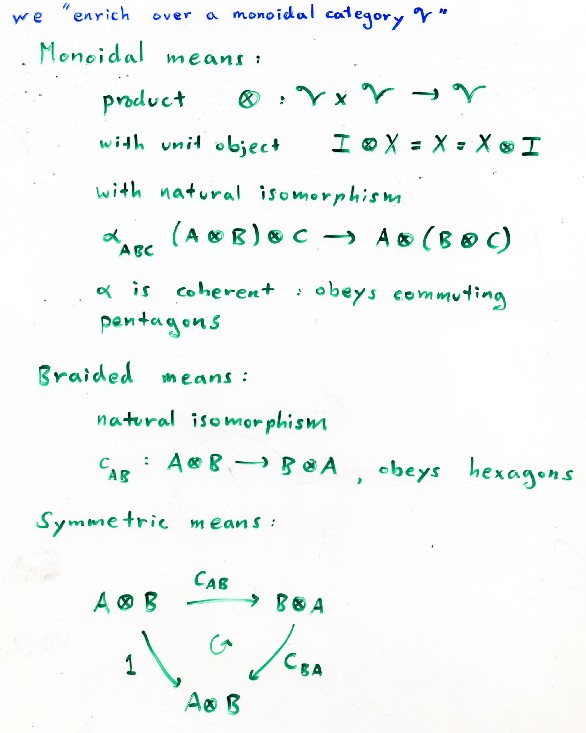 we "enrich over a monoidal category 𝒱"
Monoidal means :
product ⊗ : 𝒱 x 𝒱 → 𝒱
with unit object I ⊗ X = X = X ⊗ I
with natural isomorphism
α_ABC (A ⊗ B) ⊗ C → A ⊗ (B ⊗ C)
α is coherent : obeys commuting
pentagons
Braided means :
natural isomorphism
c_AB : A ⊗ B → B ⊗ A , obeys hexagons
Symmetric means :
C_AB
A ⊗ B → B ⊗ A
1 ↺ C_BA
A ⊗ B